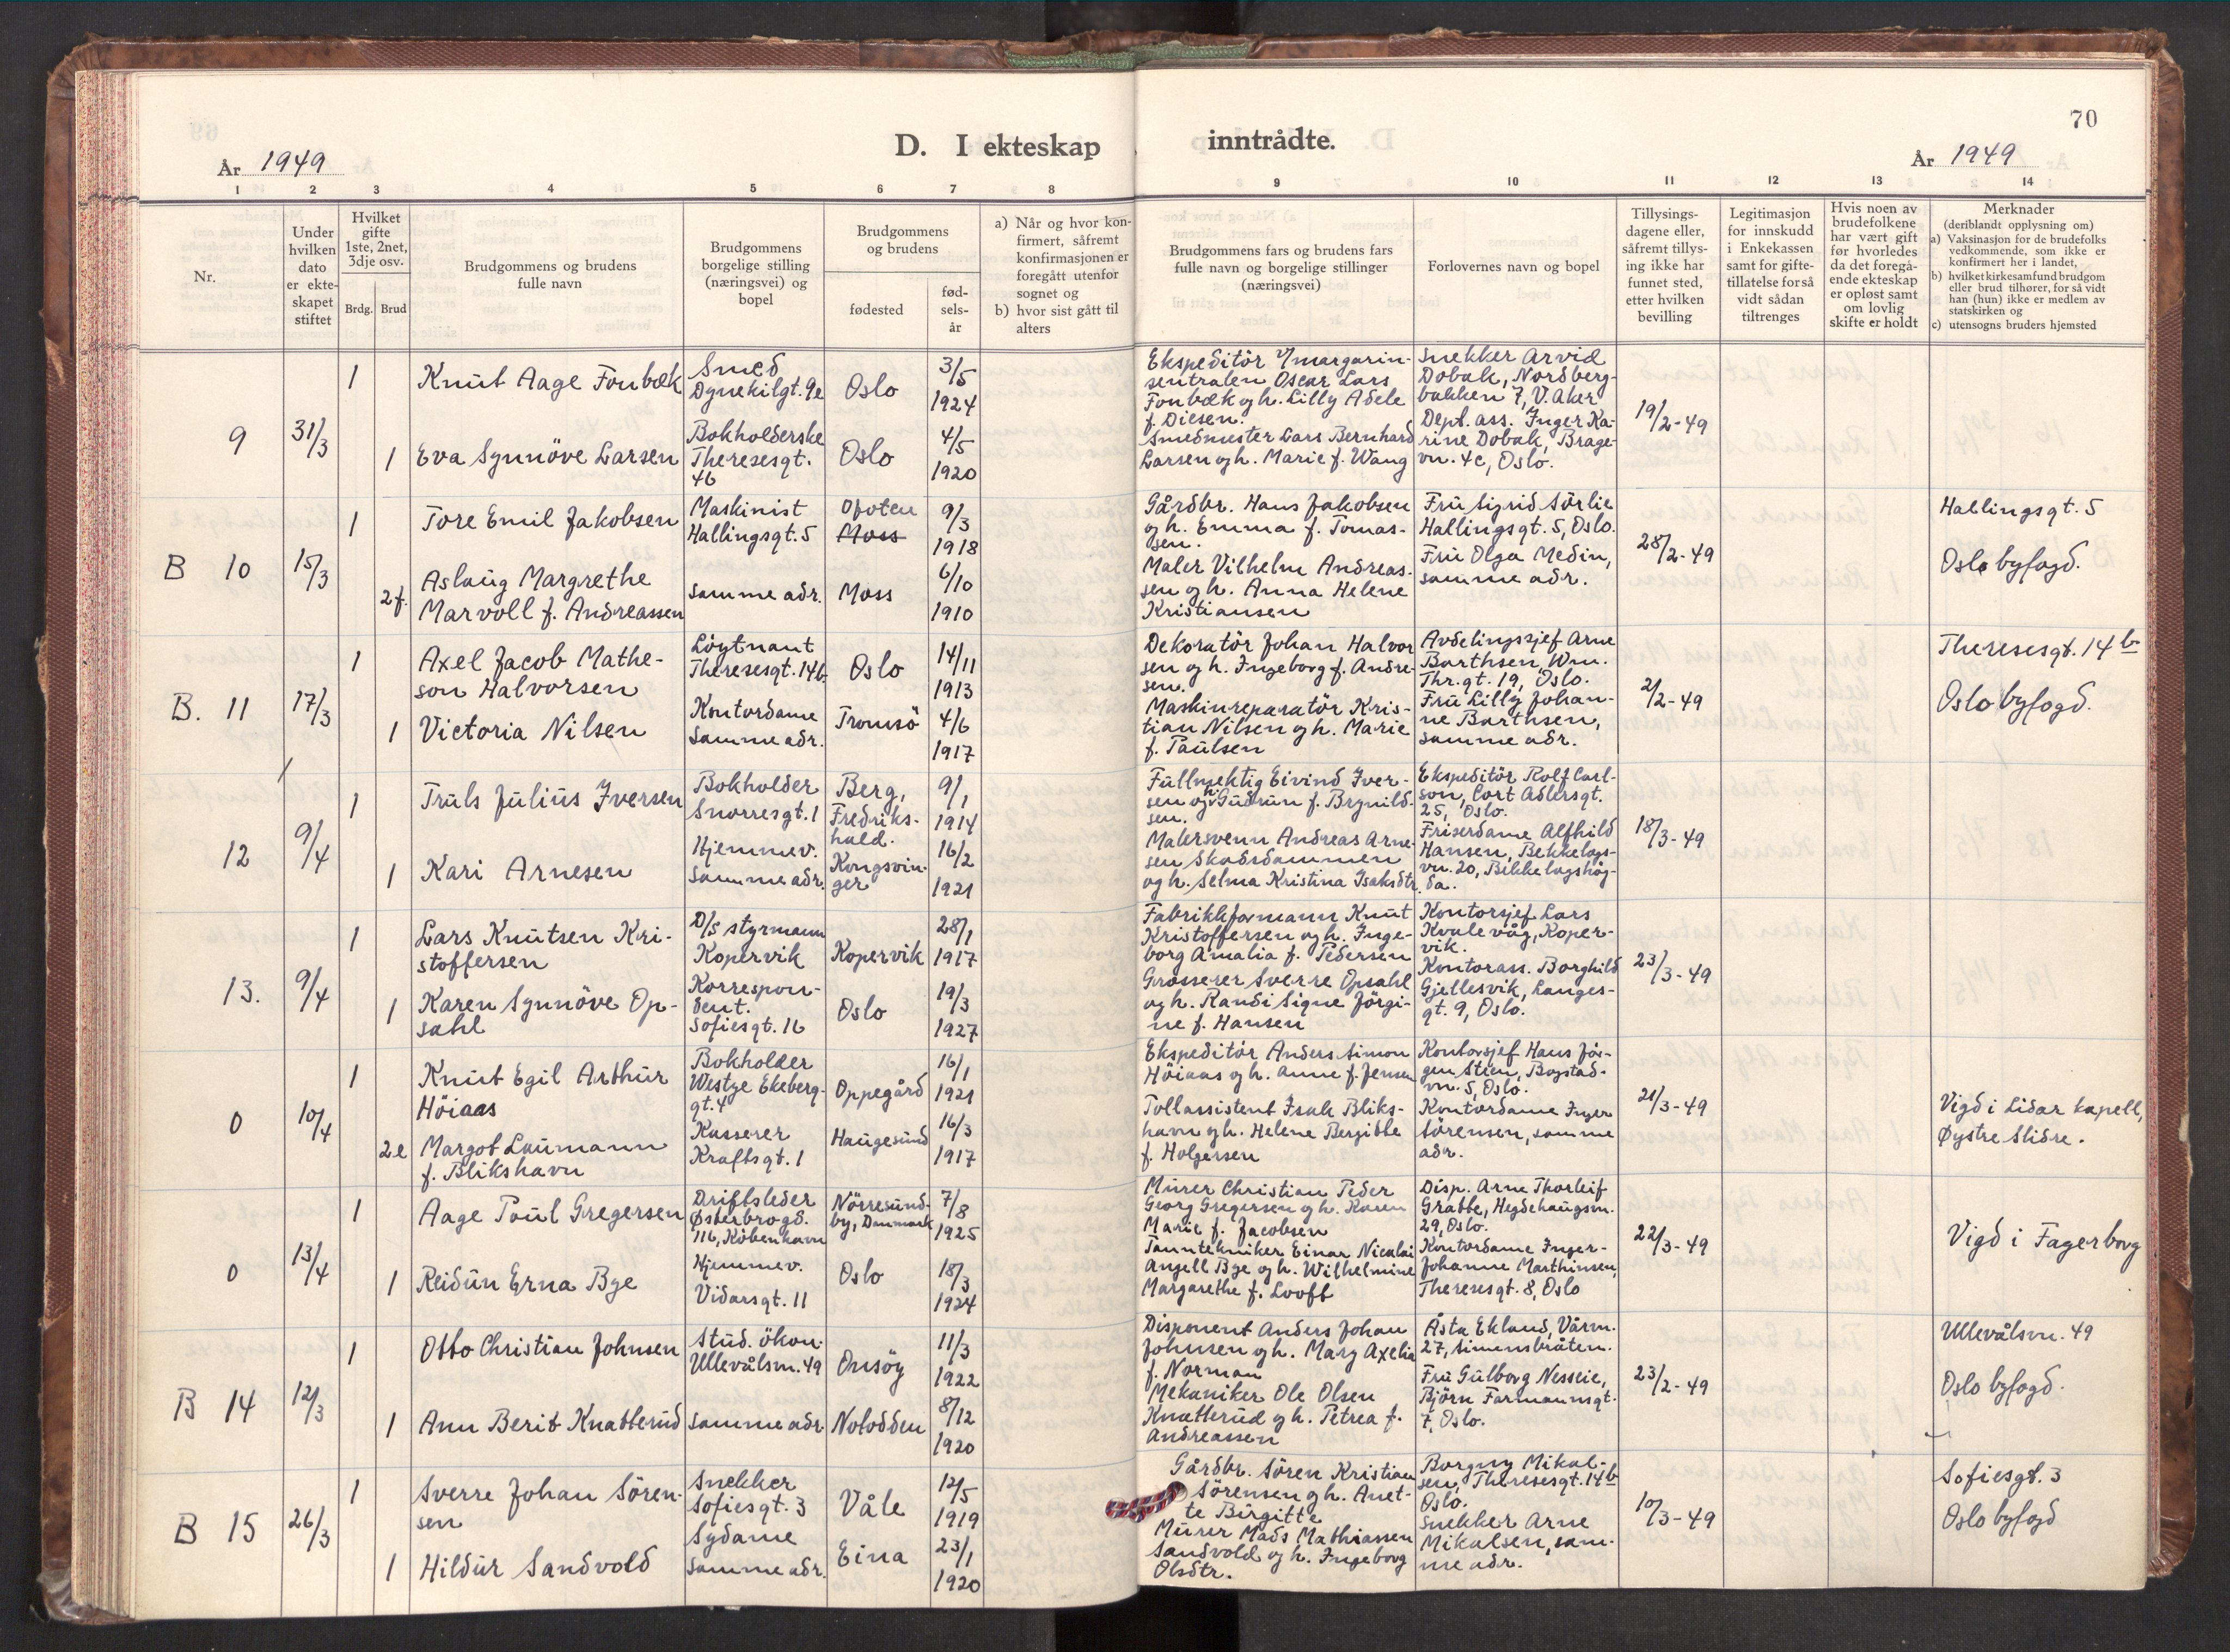 70
D. I ekteskap inntrådte.
År 1949
År 1949
1 2 3 4 5 6 7 8 9 10 11 12 13 14
Nr.
Under
hvilken
dato
er ekte-
skapet
stiftet
Hvilket
gifte
1ste, 2net,
3dje osv.
Brdg. Brud
Brudgommens og brudens
fulle navn
Brudgommens
borgelige stilling
(næringsvei) og
bopel
Brudgommens
og brudens
fødested
fød-
sels-
år
a) Når og hvor kon-
firmert, såfremt
konfirmasjonen er
foregått utenfor
sognet og
b) hvor sist gått til
alters
Brudgommens fars og brudens fars
fulle navn og borgelige stillinger
(næringsvei)
Forlovernes navn og bopel
Tillysings-
dagene eller,
såfremt tillys-
ing ikke har
funnet sted,
etter hvilken
bevilling
Legitimasjon
for innskudd
i Enkekassen
samt for gifte-
tillatelse for så
vidt sådan
tiltrenges
Hvis noen av
brudefolkene
har vært gift
før hvorledes
da det foregå-
ende ekteskap
er opløst samt
om lovlig
skifte er holdt
Merknader
(deriblandt opplysning om)
a) Vaksinasjon for de brudefolks
vedkommende, som ikke er
konfirmert her i landet,
b) hvilket kirkesamfund brudgom
eller brud tilhører, for så vidt
han (hun) ikke er medlem av
statskirken og
c) utensogns bruders hjemsted
9
31/3
1
Knut Aage Fonbæk
Smed
Dynekilgt. 9e
Oslo
3/5
1924
1
Eva Synnöve Larsen
Bokholderske
Theresesgt.
46
Oslo
4/5
1920
Ekspeditör v/margarin-
sentralen Oscar Lars
Fonbæk og h. Lilly Adele
f. Diesen.
Smedmester Lars Bernhard
Larsen og h. Marie f. Wang
Snekker Arvid
Dobak, Nordberg-
bakken 7, V. Aker
Dept. ass. Inger Ka-
rine Dobak, Brage-
vn. 4c, Oslo.
19/2-49
B 10
15/3
1
Tore Emil Jakobsen
Maskinist
Hallingsgt. 5
Ofoten
Moss
9/3
1918
2f.
Aslaug Margrethe
Marvoll f. Andreassen
samme adr.
Moss
6/10
1910
Gårdbr. Hans Jakobsen
og h. Emma f. Tomas-
sen.
Maler Vilhelm Andreas-
sen og h. Anna Helene
Kristiansen
Fru Sigrid Sörlie
Hallingsgt. 5, Oslo.
Fru Olga Medin,
samme adr.
28/2-49
Hallingsgt. 5
Oslo byfogd.
B. 11
17/3
1
Axel Jacob Mathe-
son Halvorsen
Löytnant
Theresesgt. 14b.
Oslo
14/11
1913
1
Victoria Nilsen
Kontordame
samme adr.
Tromsö
4/6
1917
Dekoratör Johan Halvor
sen og h. Ingeborg f. Andre-
sen.
Maskinreparatör Kris-
tian Nilsen og h. Marie
f. Paulsen
Avdelingssjef Arne
Barthsen, Wm.
Thr. gt. 19, Oslo.
Fru Lilly Johan-
ne Barthsen,
samme adr.
2/2-49
Theresesgt. 14b
Oslo byfogd.
12
9/4
1
Truls Julius Iversen
Bokholder
Snorresgt. 1
Berg,
Fredriks-
hald.
9/1
1914
1
Kari Arnesen
Hjemmev.
samme adr.
Kongsvin-
ger
16/2
1921
Fullmektig Eivind Iver-
sen og h. Gudrun f. Brynild-
sen.
Malersvenn Andreas Arne-
sen Skadsdammen
og h. Selma Kristina Isaksdtr.
Ekspeditör Rolf Carl-
son, Cort Adlersgt.
25, Oslo.
Friserdame Alfhild
Hansen, Bekkelags-
vn. 20, Bekkelagshög-
da.
18/3-49
13.
9/4
1
Lars Knutsen Kri-
stoffersen
D/S styrmann
Kopervik
Kopervik
28/1
1917
1
Karen Synnöve Op-
sahl
Korrespon-
dent.
Sofiesgt. 16
Oslo
19/3
1927
Fabrikkformann Knut
Kristoffersen og h. Inge-
borg Amalia f. Pedersen
Grosserer Sverre Opsahl
og h. Randi Signe Jörgi-
ne f. Hansen
Kontorsjef Lars
Kvalevåg, Koper-
vik.
Kontorass. Borghild
Gjellesvik, Langes-
gt. 9, Oslo.
23/3-49
0
10/4
1
Knut Egil Arthur
Höiaas
Bokholder
Westye Ekeberg-
gt. 4
Oppegård
16/1
1921
2e
Margot Laumann
f. Blikshavn
Kasserer
Kraftsgt. 1
Haugesund
16/3
1917
Ekspeditör Anders Simon
Höiaas og h. Anne f. Jensen
Tollassistent Isak Bliks-
havn og h. Helene Bergitte
f. Holgersen
Kontorsjef Hans Jör-
gen Steen, Bogstad-
vn. 5, Oslo.
Kontordame Inger
Sörensen, samme
adr.
21/3-49
Vigd i Lidar kapell,
Øystre Slidre.
0
13/4
1
Aage Poul Gregersen
Driftsleder
Østerbrogd.
116, København
Nörresund-
by, Danmark
7/8
1925
1
Reidun Erna Bye
Hjemmev.
Vidarsgt. 11
Oslo
18/3
1924
Murer Christian Peder
Georg Gregersen og h. Karen
Marie f. Jacobsen
Tanntekniker Einar Nicolai
Angell Bye og h. Wilhelmine
Margarethe f. Looft
Disp. Arne Thorleif
Grabbe, Hegdehaugsvn.
29, Oslo.
Kontordame Inger-
Johanne Marthinsen,
Theresesgt. 8, Oslo
22/3-49
Vigd i Fagerborg
B 14
12/3
1
Otto Christian Johnsen
Stud. ökon.
Ullevålsvn. 49
Onsöy
11/3
1922
1
Ann Berit Knatterud
samme adr.
Notodden
8/12
1920
Disponent Anders Johan
Johnsen og h. Mary Axelia
f. Norman
Mekaniker Ole Olsen
Knatterud og h. Petrea f.
Andreassen
Åsta Eklund, Vårvn.
27, Simensbråten.
Fru Gulborg Nesseie,
Björn Farmannsgt.
7, Oslo.
23/2-49
Ullevålsvn. 49
Oslo byfogd.
B 15
26/3
1
Sverre Johan Sören-
sen
Snekker
Sofiesgt. 3
Våle
12/5
1919
1
Hildur Sandvold
Sydame
samme adr.
Eina
23/1
1920
Gårdbr. Sören Kristian
Sörensen og h. Anet-
te Birgitte
Murer Mads Mathiassen
Sandvold og h. Ingeborg
Olsdtr.
Borgny Mikal-
sen, Theresesgt. 14b
Oslo.
Snekker Arne
Mikalsen, sam-
me adr.
10/3-49
Sofiesgt. 3
Oslo byfogd